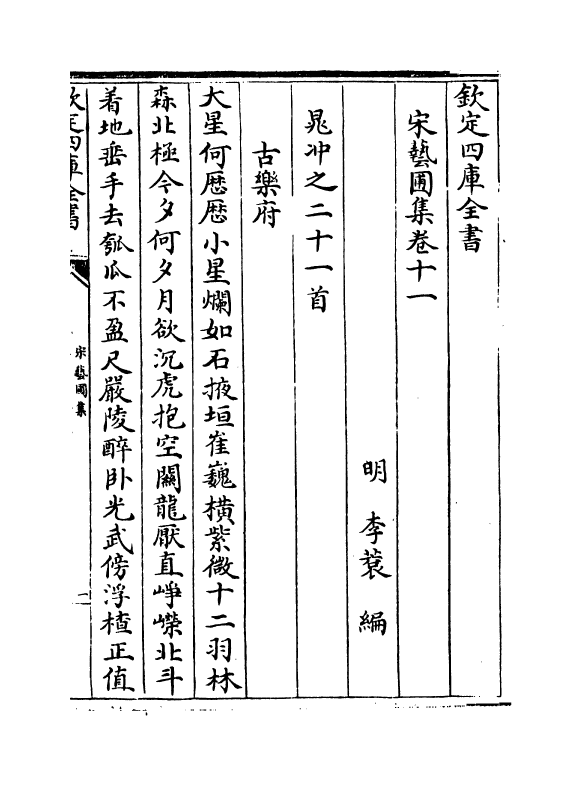 欽定四庫全書
宋藝圃集卷十一
明 李蓘 編
晁冲之二十一首
古樂府
大星何厯厯小星爛如石掖垣崔巍橫紫微十二羽林
森北極今夕何夕月欲沉虎抱空闗龍厭直崢嶸北斗
着地垂手去瓠瓜不盈尺嚴陵醉卧光武傍浮楂正值
欽定四庫全書
宋藝圃集
一